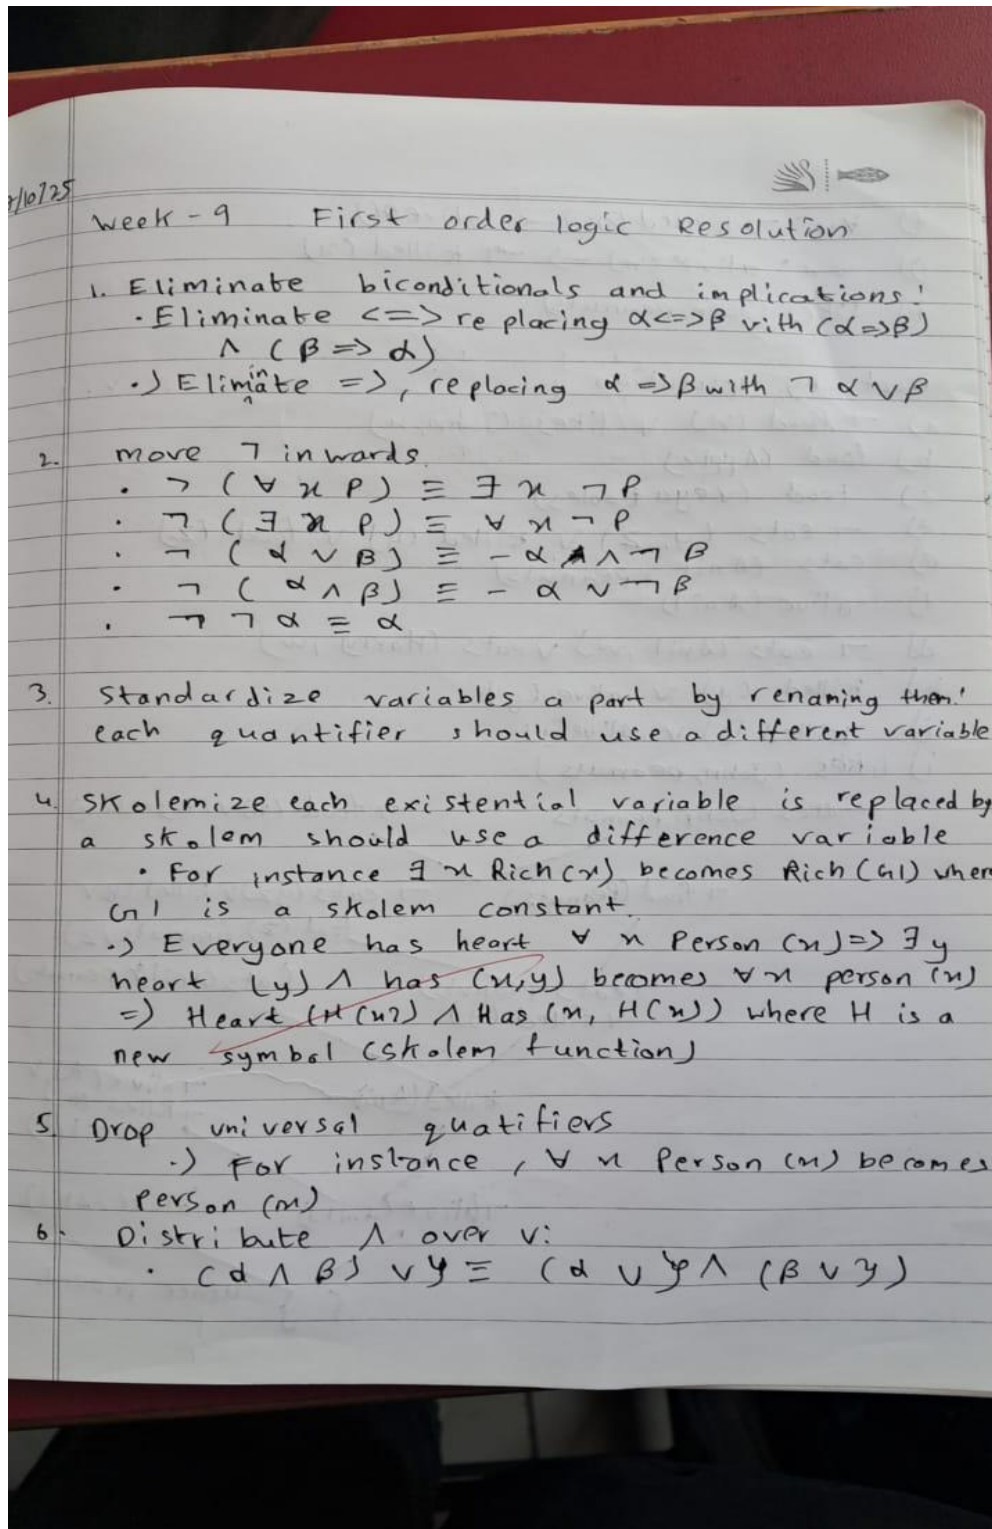 /10/25
Week - 9 First order logic Resolution
1. Eliminate biconditionals and implications!
· Eliminate <=> re placing α<=>β vith (α=>β)
∧ (β => α)
·) Elimate in ^ =>, replacing α =>β with ¬ α ∨ β
2. move ¬ in wards
· ¬ (∀ x P) ≡ ∃ x ¬ P
· ¬ (∃ x P) ≡ ∀ x ¬ P
· ¬ (α ∨ β) ≡ - α ∧ ¬ β
· ¬ (α ∧ β) ≡ - α ∨ ¬ β
· ¬ ¬ α ≡ α
3. Standardize variables a part by renaming them!
each quantifier should use a different variable
4. Skolemize each existential variable is replaced by
a skolem should use a difference variable
· For instance ∃ x Rich (x) becomes Rich (G1) wher
G1 is a skolem constant.
·) Everyone has heart ∀ x Person (x) => ∃ y
heart (y) ∧ has (x,y) becomes ∀ x person (x)
=> Heart (H(x)) ∧ Has (x, H(x)) where H is a
new symbol (Skolem function)
5. Drop universal quatifiers
·) For instance, ∀ x Person (x) becomes
Person (x)
6. Distribute ∧ over ∨:
· (α ∧ β) ∨ y ≡ (α ∨ y) ∧ (β ∨ y)